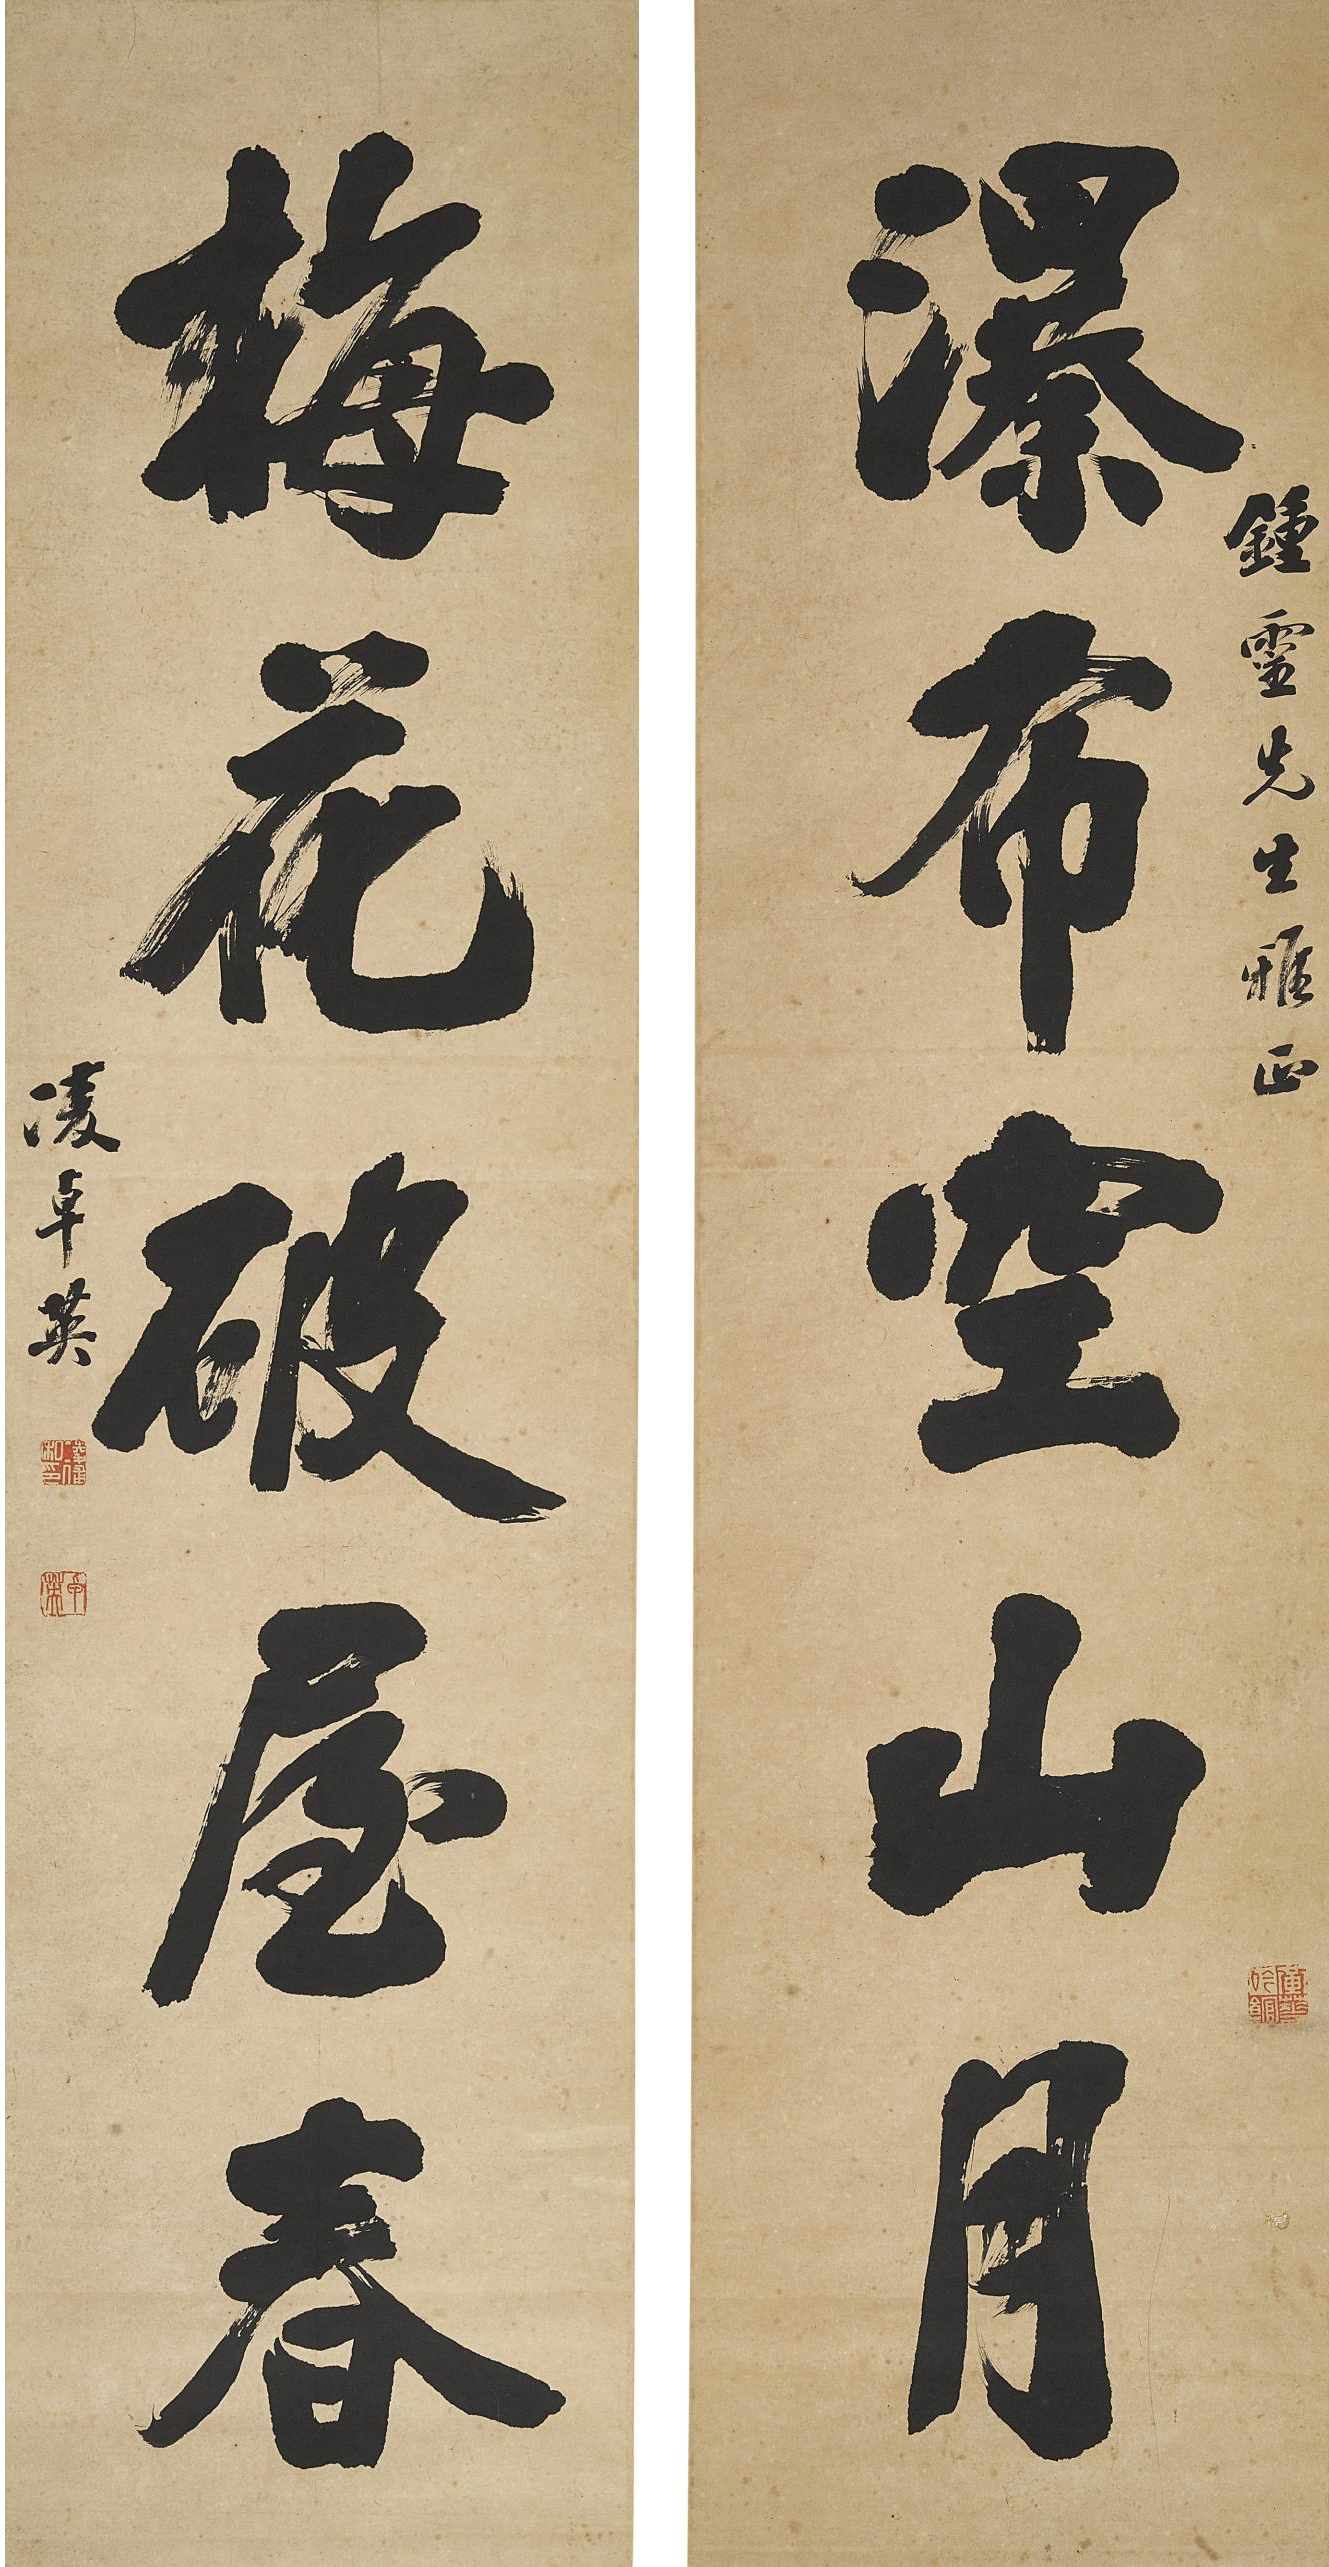 瀑布空山月
鍾靈先生雅正
梅花破屋春
凌卓英